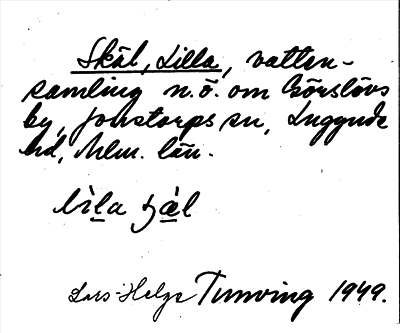 Skäl, Lilla, vatten-
samling n.ö. om Görslövs
by, Jonstorps sn, Luggude
hd, Mlm. län.
lila
Lars-Helge Tunving 1949.